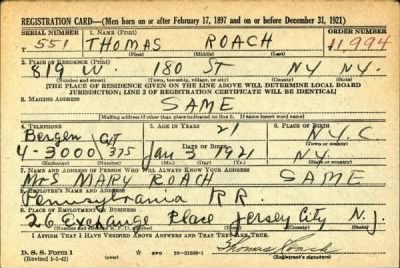 REGISTRATION CARD—(Men born on or after February 17, 1897 and on or before December 31, 1921)
SERIAL NUMBER 1. NAME (Print) ORDER NUMBER
551 THOMAS ROACH 11,994
(First) (Middle) (Last)
2. PLACE OF RESIDENCE (Print)
819 W. 180 ST NY NY.
(Number and street) (Town, township, village, or city) (County) (State)
[THE PLACE OF RESIDENCE GIVEN ON THE LINE ABOVE WILL DETERMINE LOCAL BOARD
JURISDICTION; LINE 2 OF REGISTRATION CERTIFICATE WILL BE IDENTICAL]
3. MAILING ADDRESS
SAME
[Mailing address if other than place indicated on line 2. If same insert word same]
4. TELEPHONE 5. AGE IN YEARS 6. PLACE OF BIRTH
Bergen 21 N.Y.C
DATE OF BIRTH (Town or county)
4-3000 375 Jan 3 1921 N.Y.
(Exchange) (Number) (Mo.) (Day) (Yr.) (State or country)
7. NAME AND ADDRESS OF PERSON WHO WILL ALWAYS KNOW YOUR ADDRESS
Mrs MARY ROACH SAME
8. EMPLOYER'S NAME AND ADDRESS
Pennsylvania RR.
9. PLACE OF EMPLOYMENT OR BUSINESS
26 Exchange Place Jersey City N.J.
(Number and street or R. F. D. number) (Town) (County) (State)
I AFFIRM THAT I HAVE VERIFIED ABOVE ANSWERS AND THAT THEY ARE TRUE.
D. S. S. Form 1 GPO 16—21630-1 Thomas Roach
(Revised 1-1-42) (Registrant's signature)